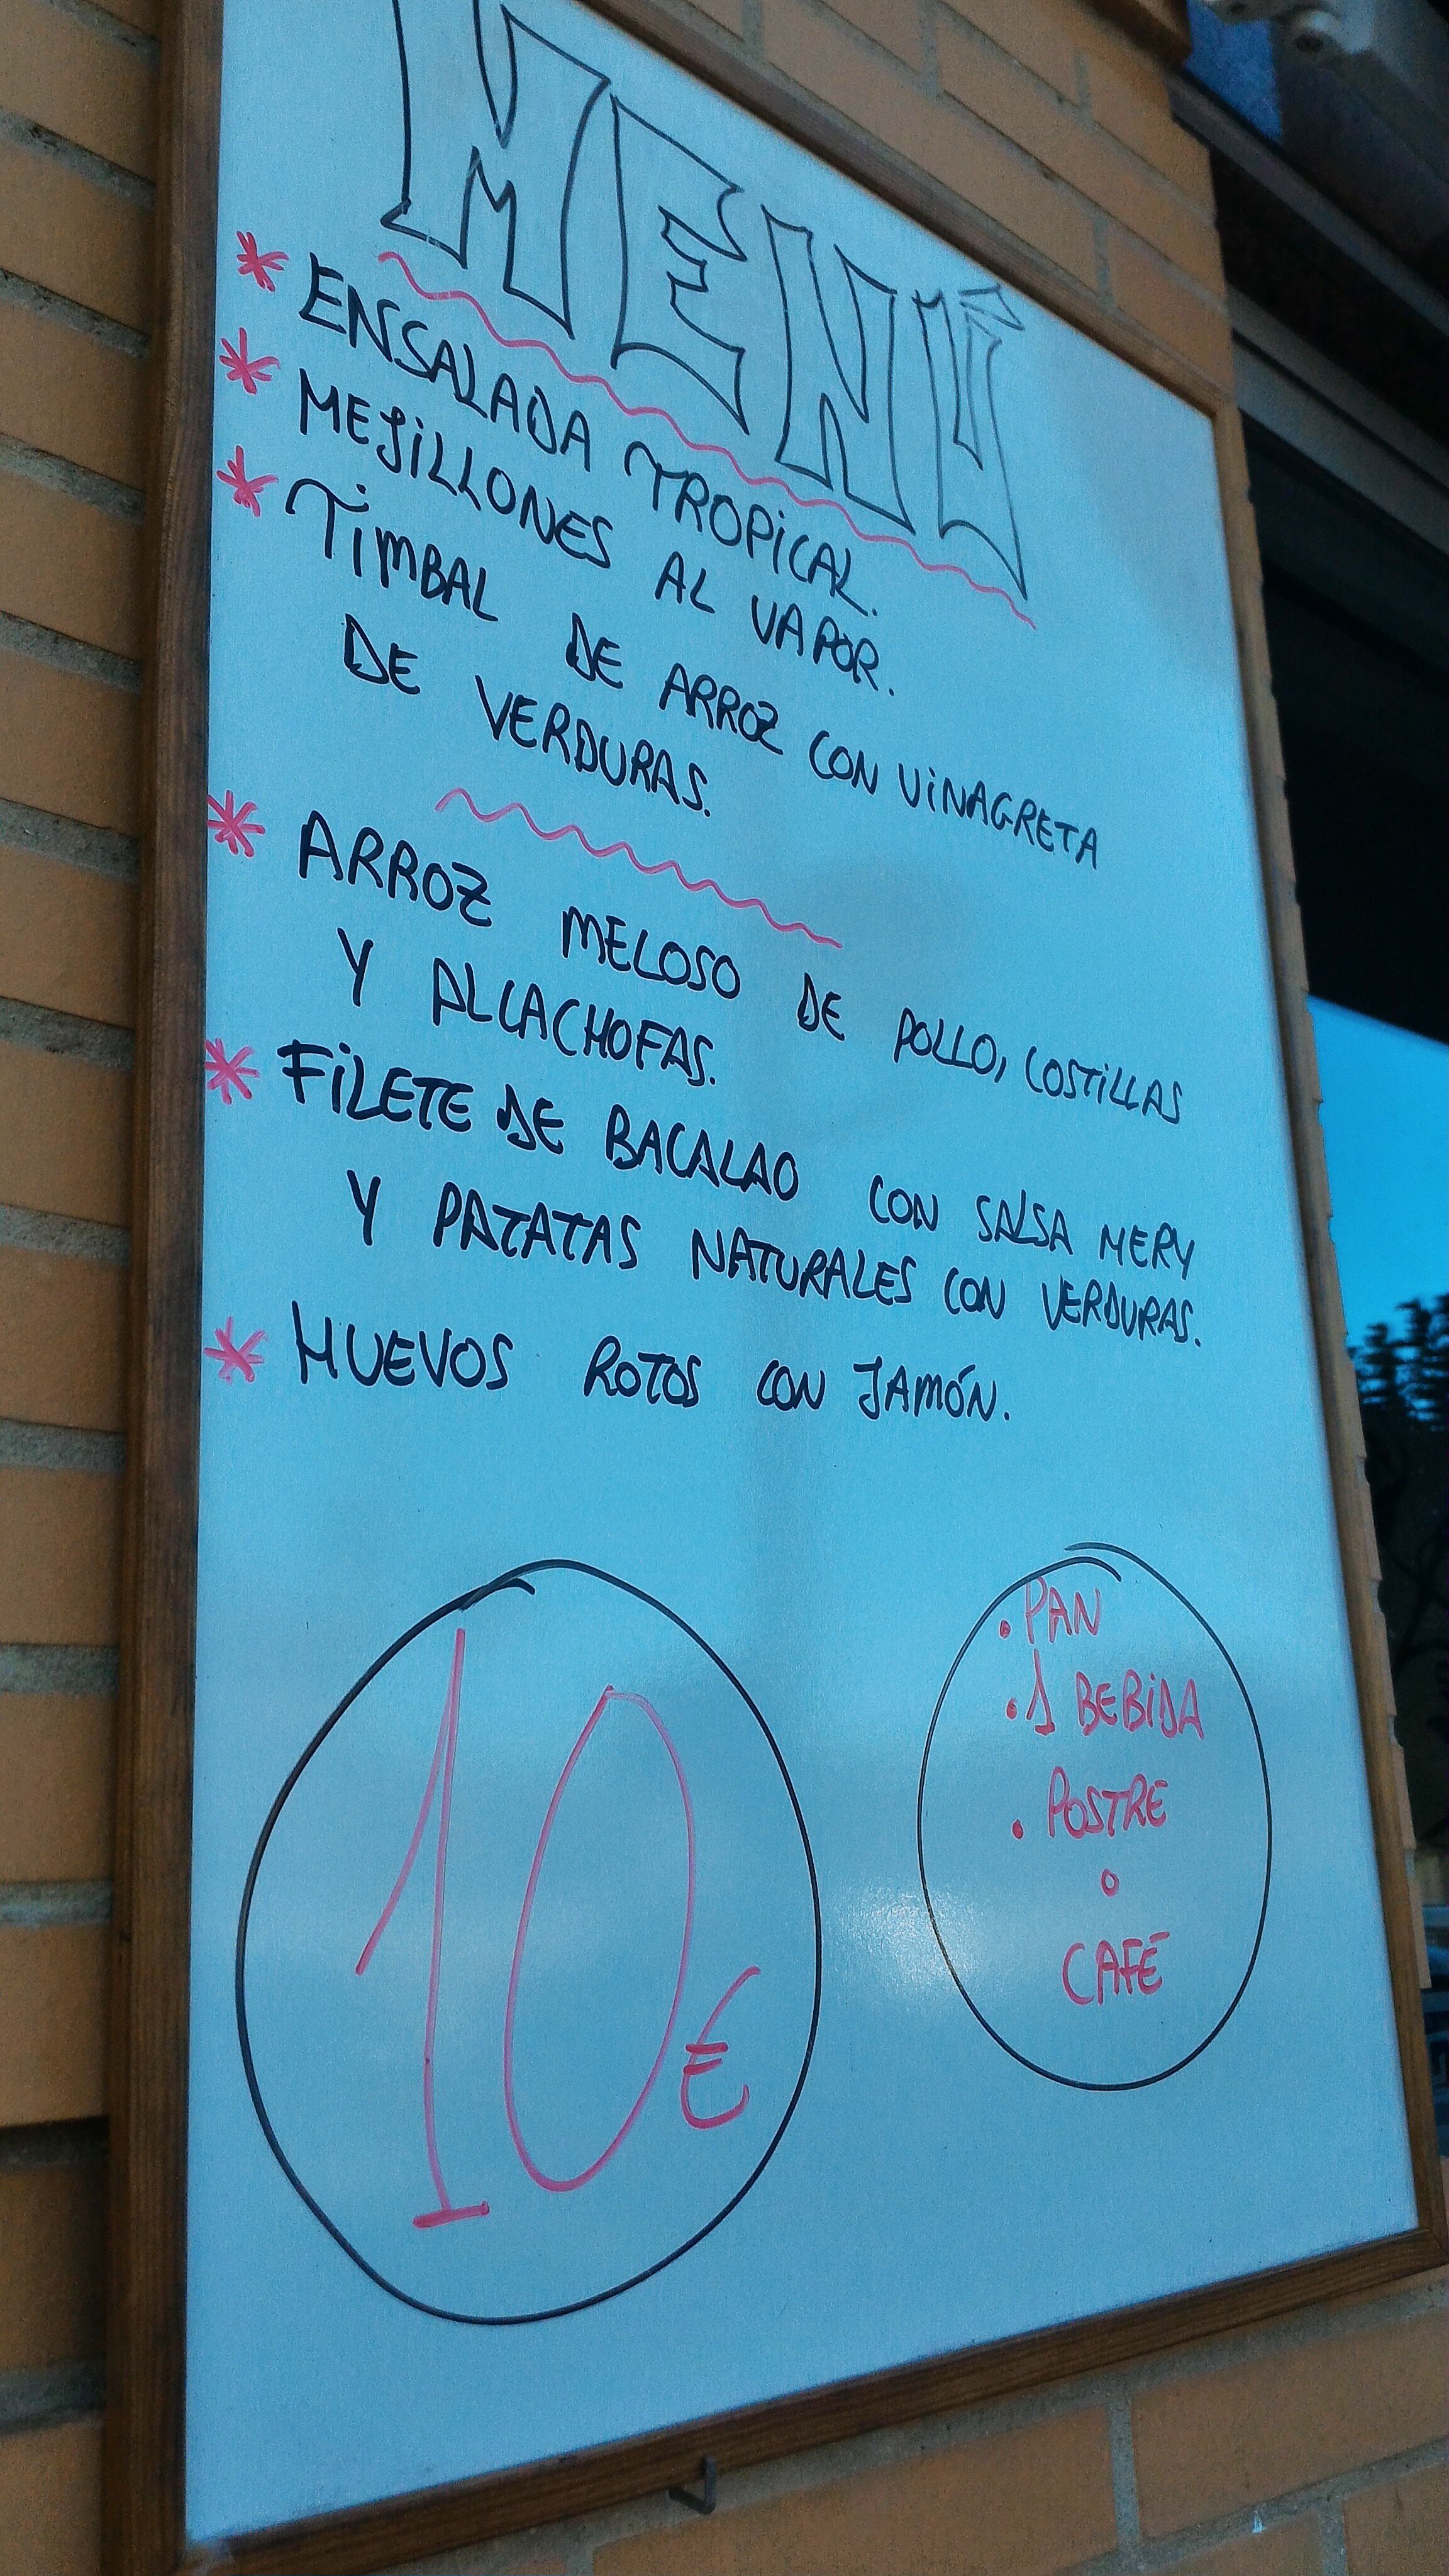 MENÚ
* ENSALADA TROPICAL.
* MEJILLONES AL VAPOR.
* TIMBAL DE ARROZ CON VINAGRETA
DE VERDURAS.
* ARROZ MELOSO DE POLLO, COSTILLAS
Y ALCACHOFAS.
* FILETE DE BACALAO CON SALSA MERY
Y PATATAS NATURALES CON VERDURAS.
* HUEVOS ROTOS CON JAMÓN.
10€
. PAN
. 1 BEBIDA
. POSTRE
o
CAFÉ